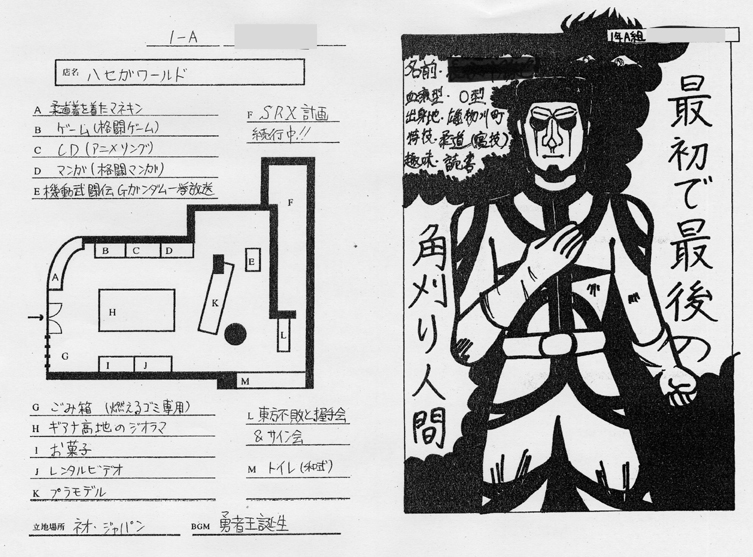 1-A
店名 ハセガワールド
A 柔道着を着たマネキン
B ゲーム(格闘ゲーム)
C CD(アニメソング)
D マンガ(格闘マンガ)
E 機動武闘伝Gガンダム一挙放送
F SRX計画
続行中!!
A
B
C
D
E
F
G
H
I
J
K
L
M
G ごみ箱 (燃えるゴミ専用)
H ギアナ高地のジオラマ
I お菓子
J レンタルビデオ
K プラモデル
L 東方不敗と握手会
& サイン会
M トイレ(和式)
立地場所 ネオ・ジャパン
BGM 勇者王誕生
1年A組
名前・
血液型・O型
出身地・雄物川町
特技・柔道(寝技)
趣味・読書
最初で最後の
角刈り人間